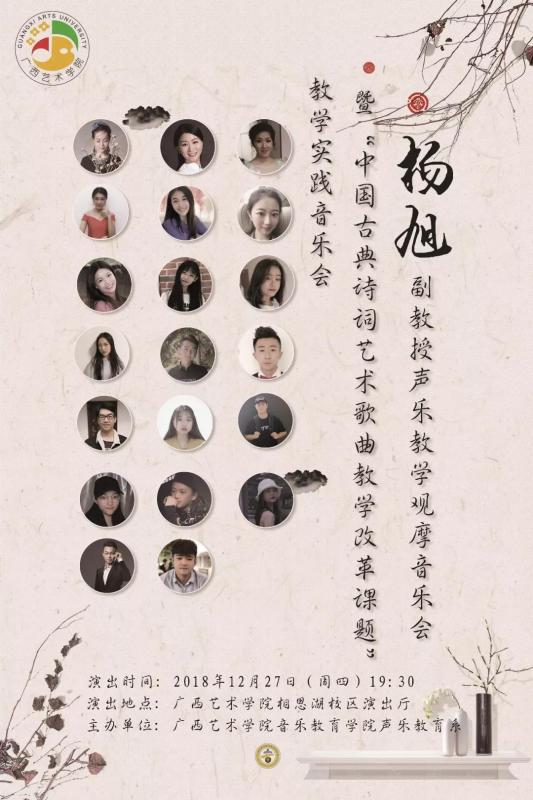 GUANGXI ARTS UNIVERSITY
广西艺术学院
杨旭
副教授声乐教学观摩音乐会
暨“中国古典诗词艺术歌曲教学改革课题”
教学实践音乐会
演出时间：2018年12月27日（周四）19:30
演出地点：广西艺术学院相思湖校区演出厅
主办单位：广西艺术学院音乐教育学院声乐教育系